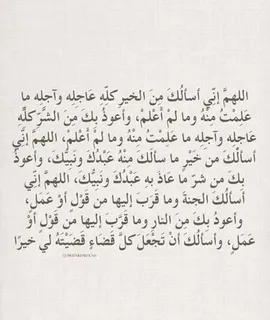 اللهمَّ إنّي أسألُكَ مِنَ الخيرِ كلِّه عَاجلِه وآجلِه ما
عَلِمْتُ مِنْهُ وما لمْ أَعْلمْ، وأعوذُ بكَ مِنَ الشَّرِّ كلِّه
عَاجلِه وآجلِه ما عَلِمْتُ مِنْهُ وما لمْ أَعْلمْ، اللهمَّ إنَّي
أسألُكَ من خَيْرِ ما سألكَ مِنْهُ عَبْدُكَ ونَبِيُّكَ، وأعوذُ
بكَ من شرِّ ما عَاذَ بهِ عَبْدُكَ ونَبِيُّكَ، اللهمَّ إنّي
أسألُكَ الجنةَ وما قَرَبَ إليها من قَوْلٍ أوْ عَمَلٍ،
وأعوذُ بكَ مِنَ النارِ وما قَرَّبَ إليها من قَوْلٍ أوْ
عَمَلٍ، وأسألُكَ أنْ تَجْعَلَ كلَّ قَضَاءٍ قَضَيْتَهُ لي خيرًا